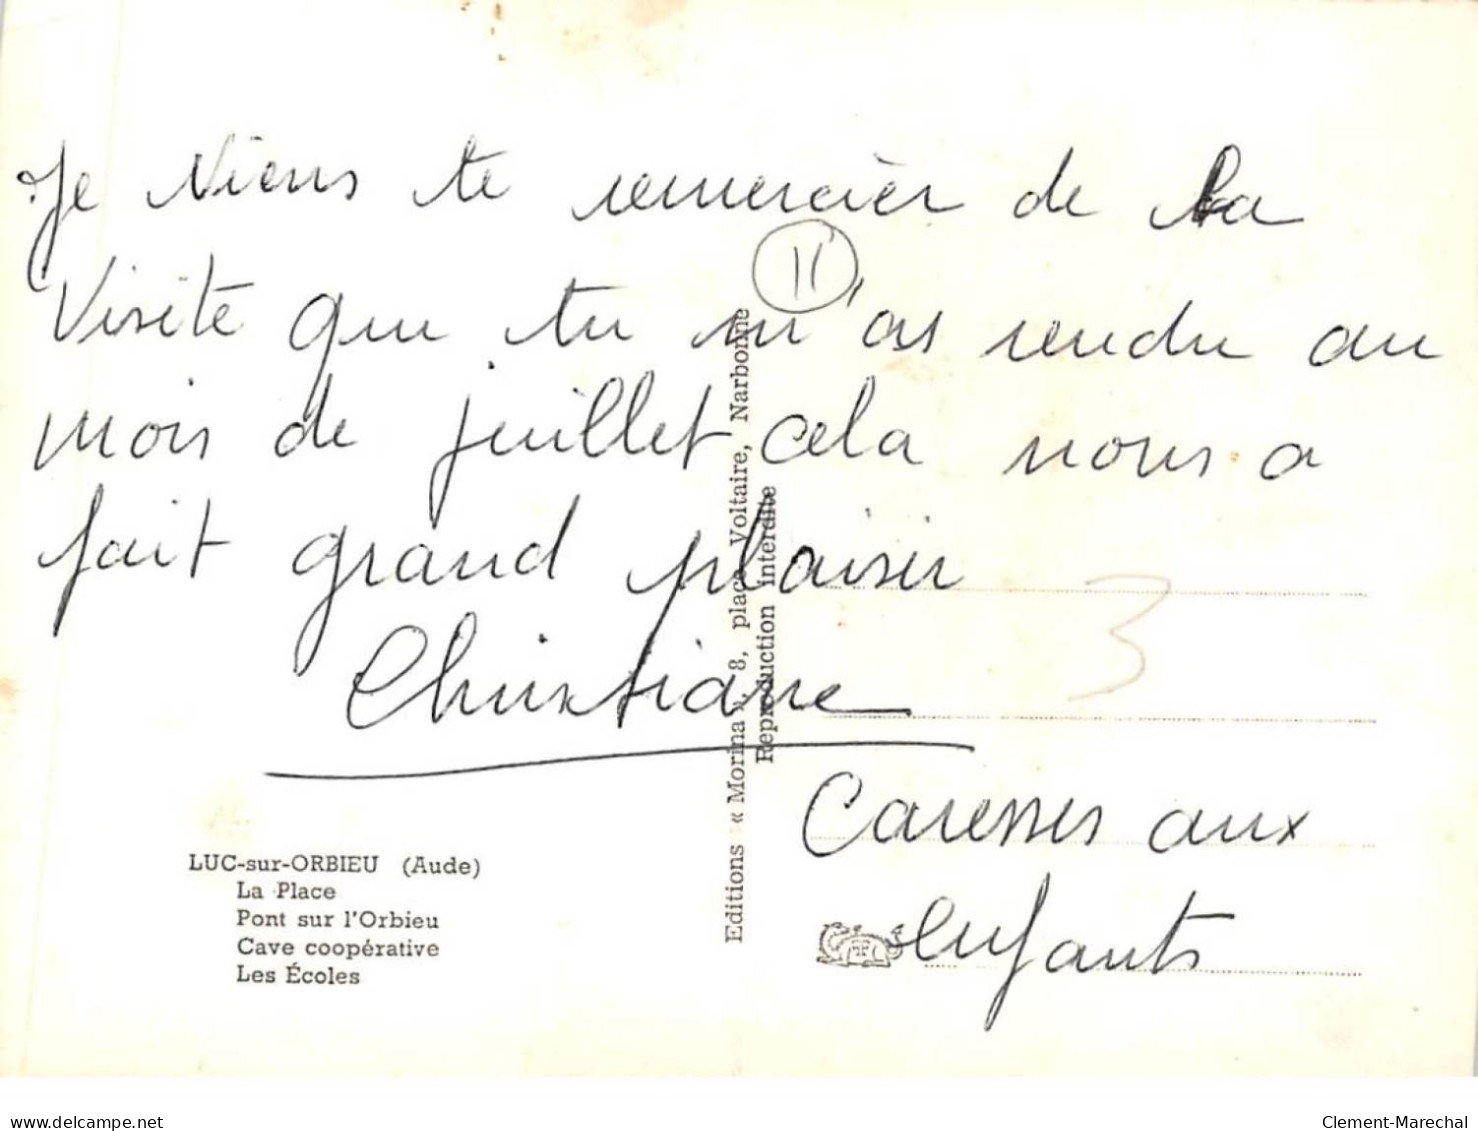 Je viens te remercier de la
Visite que tu m'as rendu au
mois de juillet cela nous a
fait grand plaisir
Christiane
Caresses aux
enfants
11
3
LUC-sur-ORBIEU (Aude)
La Place
Pont sur l'Orbieu
Cave coopérative
Les Écoles
Editions « Morina », 8, place Voltaire, Narbonne
Reproduction interdite
www.delcampe.net
Clement-Marechal